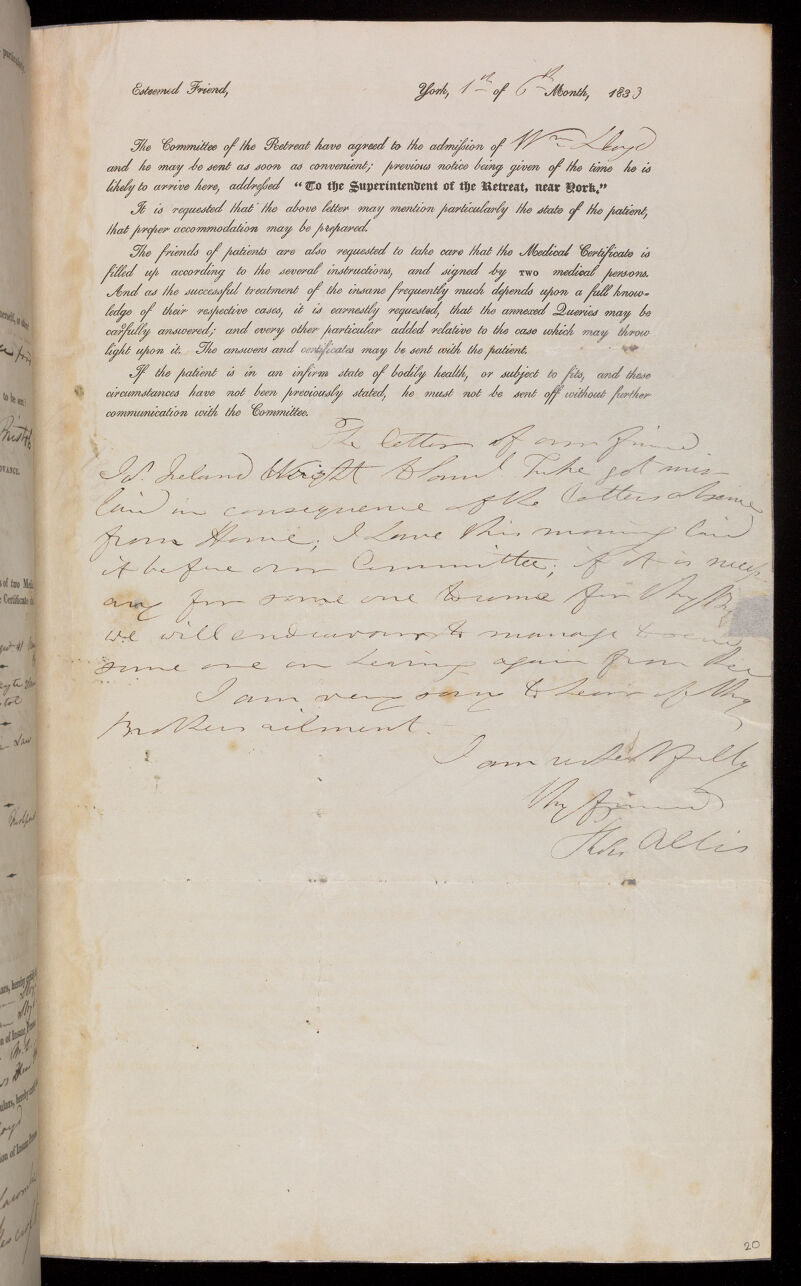 Esteemed Friend, York, 1st of 6th Month, 1833
The Committee of the Retreat have agreed to the admission of Wm Lloyd
and he may be sent as soon as convenient; previous notice being given of the time he is
likely to arrive here, addressed "To the Superintendent of the Retreat, near York."
It is requested that the above letter may mention particularly the state of the patient,
that proper accommodation may be prepared.
The friends of patients are also requested to take care that the Medical Certificate is
filled up according to the several instructions, and signed by TWO medical persons.
And as the successful treatment of the insane frequently much depends upon a full know-
ledge of their respective cases, it is earnestly requested, that the annexed Queries may be
carefully answered; and every other particular added relative to the case which may throw
light upon it. The answers and certificates may be sent with the patient.
If the patient is in an infirm state of bodily health, or subject to fits, and these
circumstances have not been previously stated, he must not be sent off without further
communication with the Committee.
The letter of our friend
Jd. Ireland Wright to Saml Tuke got mis-
laid in consequence of the latters absence
from Home; I have this morning laid
it before our Committee; if it is necess
ary for some one to come for thy
we will endeavour to manage to send
some one on hearing again from thee
I am very sorry to hear of thy
Brothers ailment.
I am respectfully
thy friend
Thos Allis
20